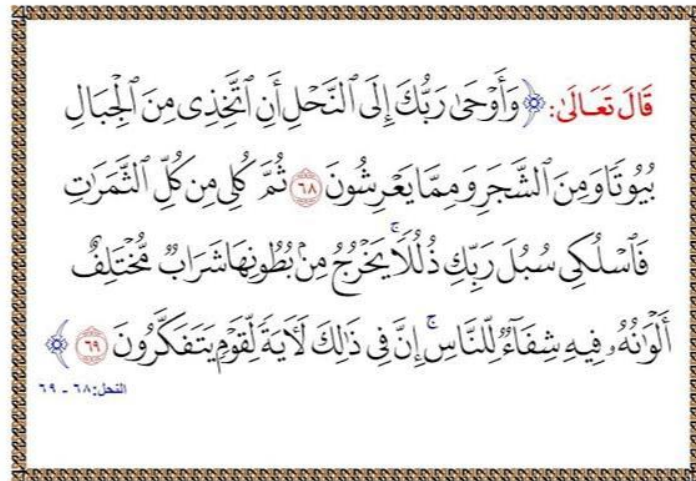 قَالَ تَعَالَىٰ: ﴿وَأَوْحَىٰ رَبُّكَ إِلَى ٱلنَّحْلِ أَنِ ٱتَّخِذِى مِنَ ٱلْجِبَالِ
بُيُوتًا وَمِنَ ٱلشَّجَرِ وَمِمَّا يَعْرِشُونَ ٦٨ ثُمَّ كُلِى مِن كُلِّ ٱلثَّمَرَٰتِ
فَٱسْلُكِى سُبُلَ رَبِّكِ ذُلُلًا ۚ يَخْرُجُ مِنۢ بُطُونِهَا شَرَابٌ مُّخْتَلِفٌ
أَلْوَٰنُهُۥ فِيهِ شِفَآءٌ لِّلنَّاسِ ۚ إِنَّ فِى ذَٰلِكَ لَءَايَةً لِّقَوْمٍ يَتَفَكَّرُونَ ٦٩﴾
النحل: ٦٨ - ٦٩